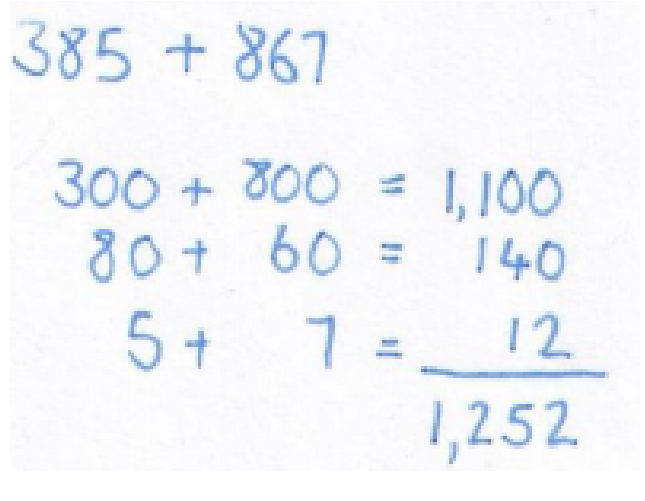 385 + 867
300 + 800 = 1,100
80 + 60 = 140
5 + 7 = 12
1,252